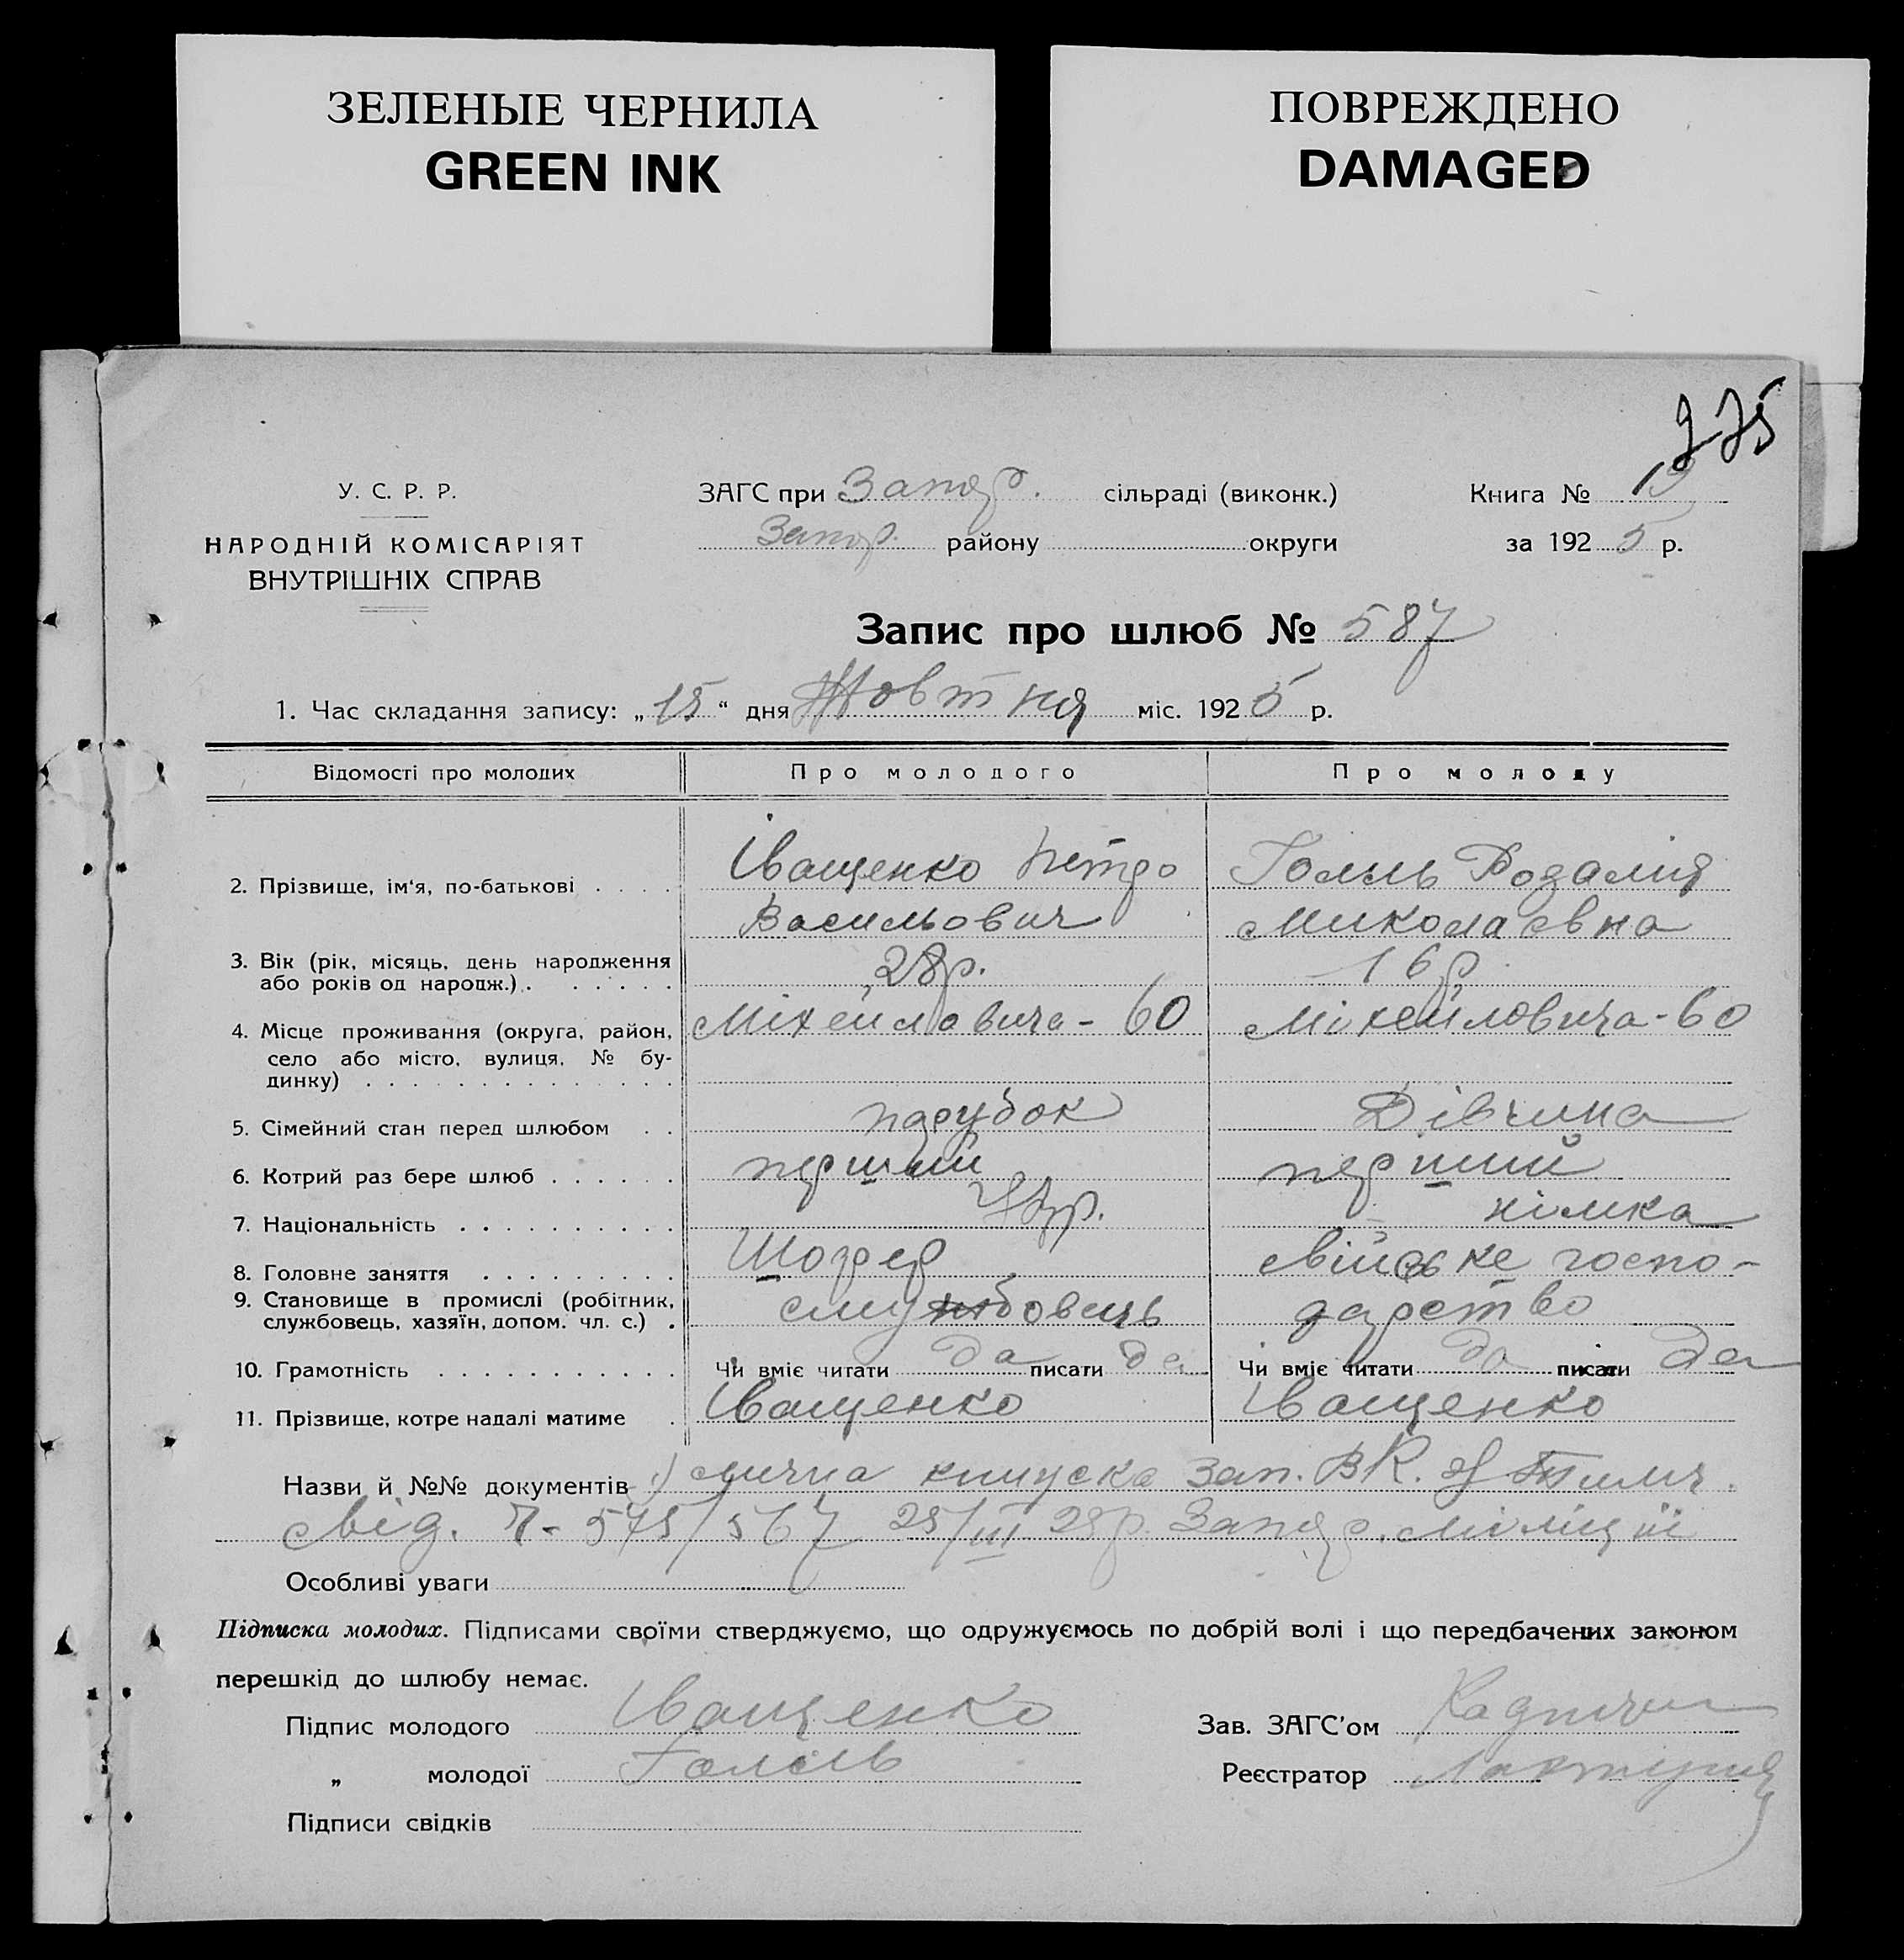 ЗЕЛЕНЫЕ ЧЕРНИЛА
GREEN INK
ПОВРЕЖДЕНО
DAMAGED
275
У. С. Р. Р.
НАРОДНІЙ КОМІСАРІЯТ
ВНУТРІШНІХ СПРАВ
ЗАГС при Запор. сільраді (виконк.)
Запор. району округи
Книга № 19
за 1925 р.
Запис про шлюб № 587
1. Час складання запису: „15“ дня Жовтня міс. 1925 р.
Відомості про молодих Про молодого Про молоду
2. Прізвище, ім‘я, по-батькові Іващенко Петро Голль Розалія
Васильович Миколаевна
3. Вік (рік, місяць, день народження
або років од народж.) 28р. 16р.
4. Місце проживання (округа, район, Міхейловича - 60 Міхейловича - 60
село або місто, вулиця, № бу-
динку)
5. Сімейний стан перед шлюбом парубок Дівчина
6. Котрий раз бере шлюб перший перший
7. Національність Укр. німка
8. Головне заняття Шофер свійське госпо-
9. Становище в промислі (робітник,
службовець, хазяїн, допом. чл. с.) службовець дарство
10. Грамотність Чи вміє читати да писати да Чи вміє читати да писати да
11. Прізвище, котре надалі матиме Іващенко Іващенко
Назви й №№ документів 1) лична книжка Зап. ВК. 2)
свід. 575/567 25/III 25р. Запор. міліції
Особливі уваги
Підписка молодих. Підписами своїми стверджуємо, що одружуємось по добрій волі і що передбачених законом
перешкід до шлюбу немає.
Підпис молодого Іващенко
„ молодої Голль
Підписи свідків
Зав. ЗАГС’ом
Реєстратор